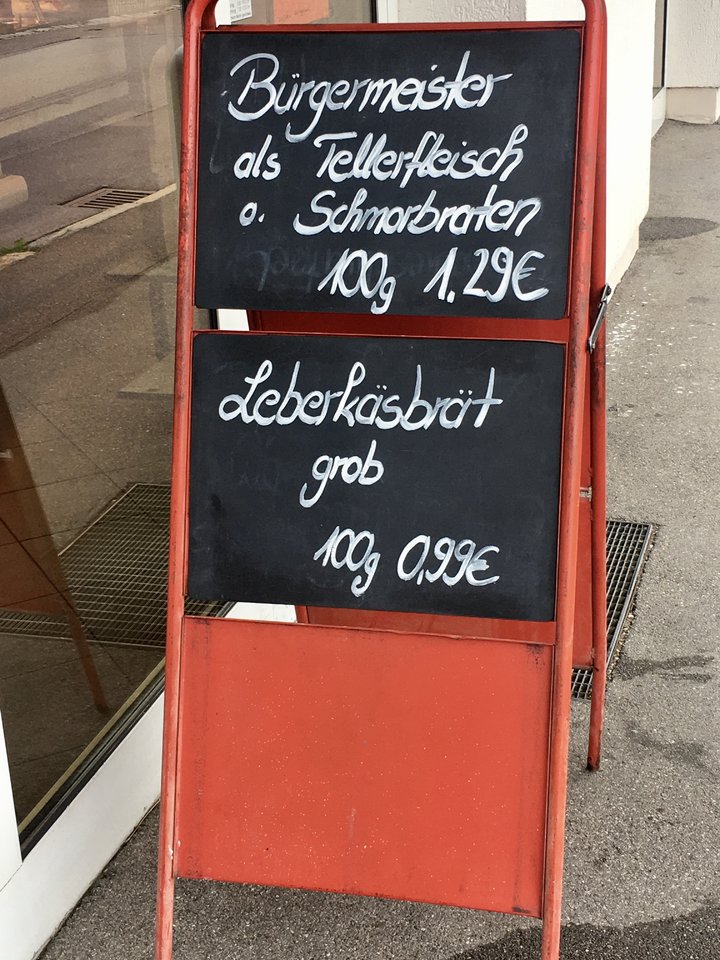 Bürgermeister
als Tellerfleisch
o. Schmorbraten
100g 1.29€
Leberkäsbrät
grob
100g 0,99€